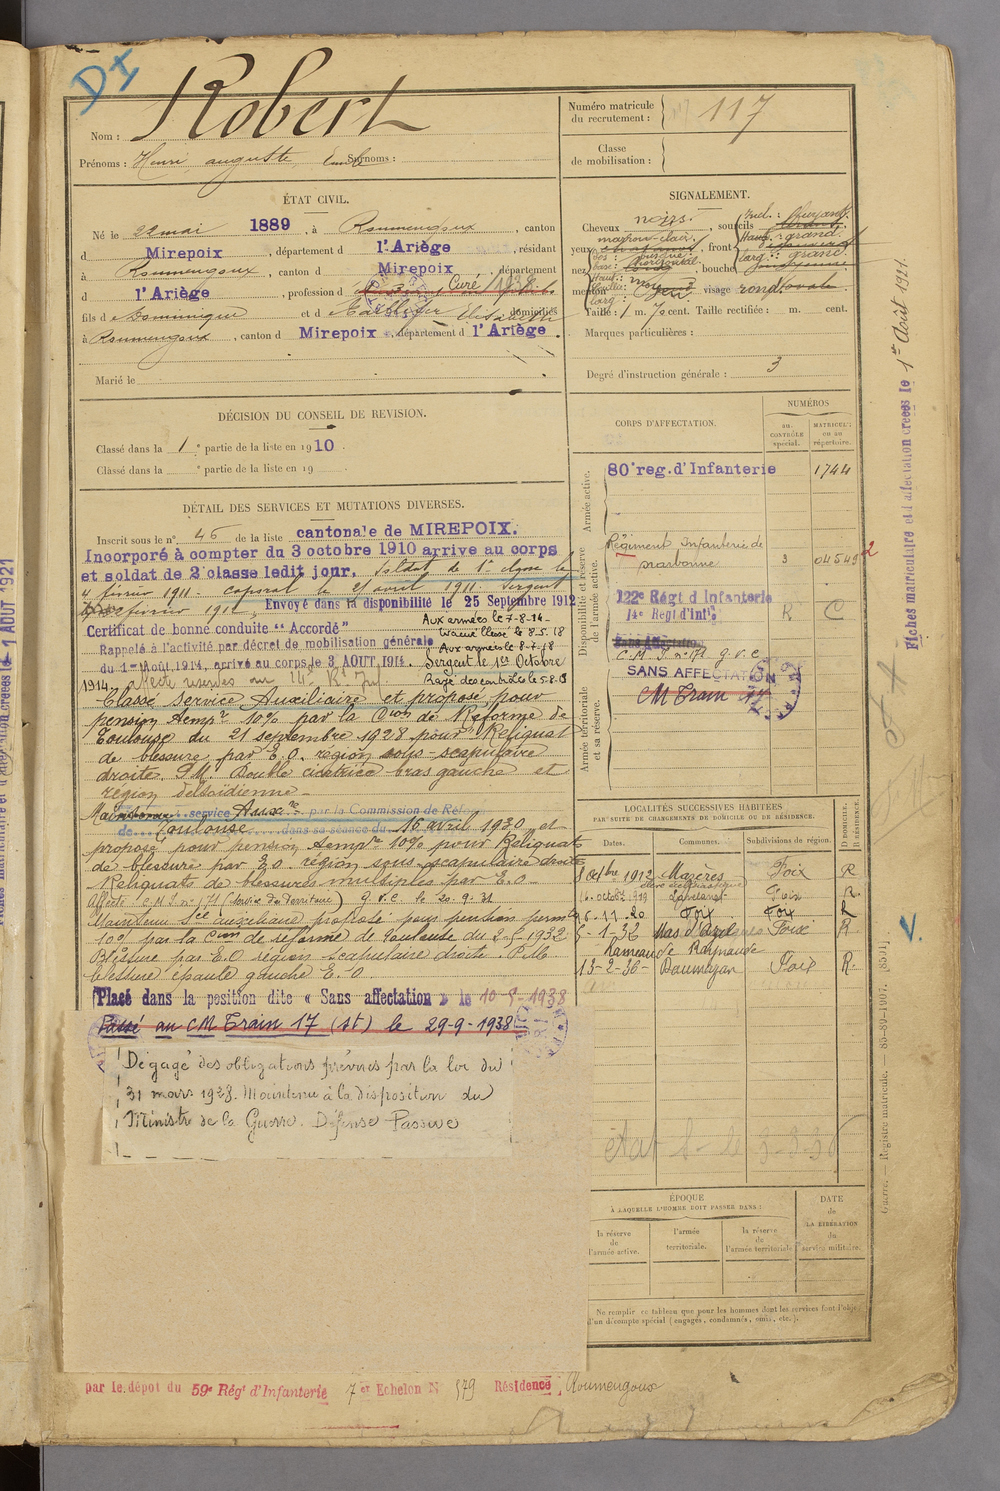 DI
Nom : Robert
Prénoms : Henri, auguste, Emile Surnoms :
Numéro matricule du recrutement : 117
Classe de mobilisation :
ÉTAT CIVIL.
Né le 22 mai 1889, à Roumengoux, canton
d Mirepoix, département d l'Ariège, résidant
à Roumengoux, canton d Mirepoix, département
d l'Ariège, profession d Curé
fils d Dominique et d Elisabeth domiciliés
à Roumengoux, canton d Mirepoix, département d l'Ariège
Marié le
SIGNALEMENT.
Cheveux noirs, sourcils
yeux marron clair, front
nez, bouche
menton, visage rond ovale
Taille : 1 m. 70 cent. Taille rectifiée : m. cent.
Marques particulières :
Degré d'instruction générale : 3
DÉCISION DU CONSEIL DE REVISION.
Classé dans la 1e partie de la liste en 1910
Classé dans la e partie de la liste en 19
DÉTAIL DES SERVICES ET MUTATIONS DIVERSES.
Inscrit sous le n° 46 de la liste cantonale de MIREPOIX.
Incorporé à compter du 3 octobre 1910 arrive au corps
et soldat de 2e classe ledit jour. Soldat de 1e classe le
4 février 1911. caporal le 21 avril 1911. Sergent
Envoyé dans la disponibilité le 25 Septembre 1912
Certificat de bonne conduite "Accordé"
Aux armées le 7-8-14
Evacué blessé le 8.5.18
Rappelé à l'activité par décret de mobilisation générale
Aux armées le 8-7-18
du 1er Août 1914, arrivé au corps le 3 AOUT 1914.
Sergent le 1er Octobre
1914.
Rayé des contrôles le 5-8-19
Classé Service Auxiliaire et proposé pour
pension tempre 10% par la Cion de Réforme de
Toulouse du 21 septembre 1928 pour Reliquat
de blessure par E.O. région sous-scapulaire
droite. P.M. Double cicatrice bras gauche et
région deltoïdienne
Maintenu service Auxre par la Commission de Réforme
de Toulouse dans sa séance du 16 avril 1930 et
proposé pour pension tempre 10% pour Reliquat
de blessure par E.O. région sous scapulaire droite
Reliquats de blessures multiples par E.O
Affecté C.M.I. n° 171 (Service du Territoire) g.v.c le 20.9.31
Maintenu Sce auxiliaire proposé pour pension permte
10% par la Cion de réforme de Toulouse du 2-5-1932
Blessure par E.O région scapulaire droite. P.M.
blessure épaule gauche E.O.
Placé dans la position dite « Sans affectation » le 10-5-1938
Passé au CM Train 17 (st) le 29-9-1938
Dégagé des obligations prévues par la loi du
31 mars 1928. Maintenu à la disposition du
Ministre de la Guerre. Défense Passive
CORPS D'AFFECTATION.
NUMÉROS
au CONTRÔLE spécial.
MATRICULE ou au répertoire.
Armée active.
80e reg. d'Infanterie 1744
Disponibilité et réserve de l'armée active.
Régiment Infanterie de Narbonne 3 04545
122e Régt d Infanterie
14e Regt d'Infie R C
Armée territoriale et sa réserve.
C.M.I. n° 171 g.v.c
SANS AFFECTATION
CM Train 17
LOCALITÉS SUCCESSIVES HABITÉES
PAR SUITE DE CHANGEMENTS DE DOMICILE OU DE RÉSIDENCE.
Dates. Communes. Subdivisions de région. D DOMICILE. R RÉSIDENCE.
8 Octbre 1912 Mazères Foix R
élève ecclésiastique
16 octobre 1919 Foix R.
6-11-20 Foix Foix R
5-1-32 Mas d'Azil Foix R
13-2-36 Daumazan Foix R.
état S- le 3-3-36
ÉPOQUE
À LAQUELLE L'HOMME DOIT PASSER DANS :
la réserve de l'armée active.
l'armée territoriale.
la réserve de l'armée territoriale
DATE de LA LIBÉRATION du service militaire.
Ne remplir ce tableau que pour les hommes dont les services font l'objet
d'un décompte spécial (engagés, condamnés, omis, etc.).
par le dépôt du 59e Régt d'Infanterie 7er Echelon N° 579 Résidence Roumengoux
Fiches matriculaire et d'affectation creées le 1er Août 1921.
Guerre. — Registre matricule. — 85-89-1907. [8591]
1 AOUT 1921